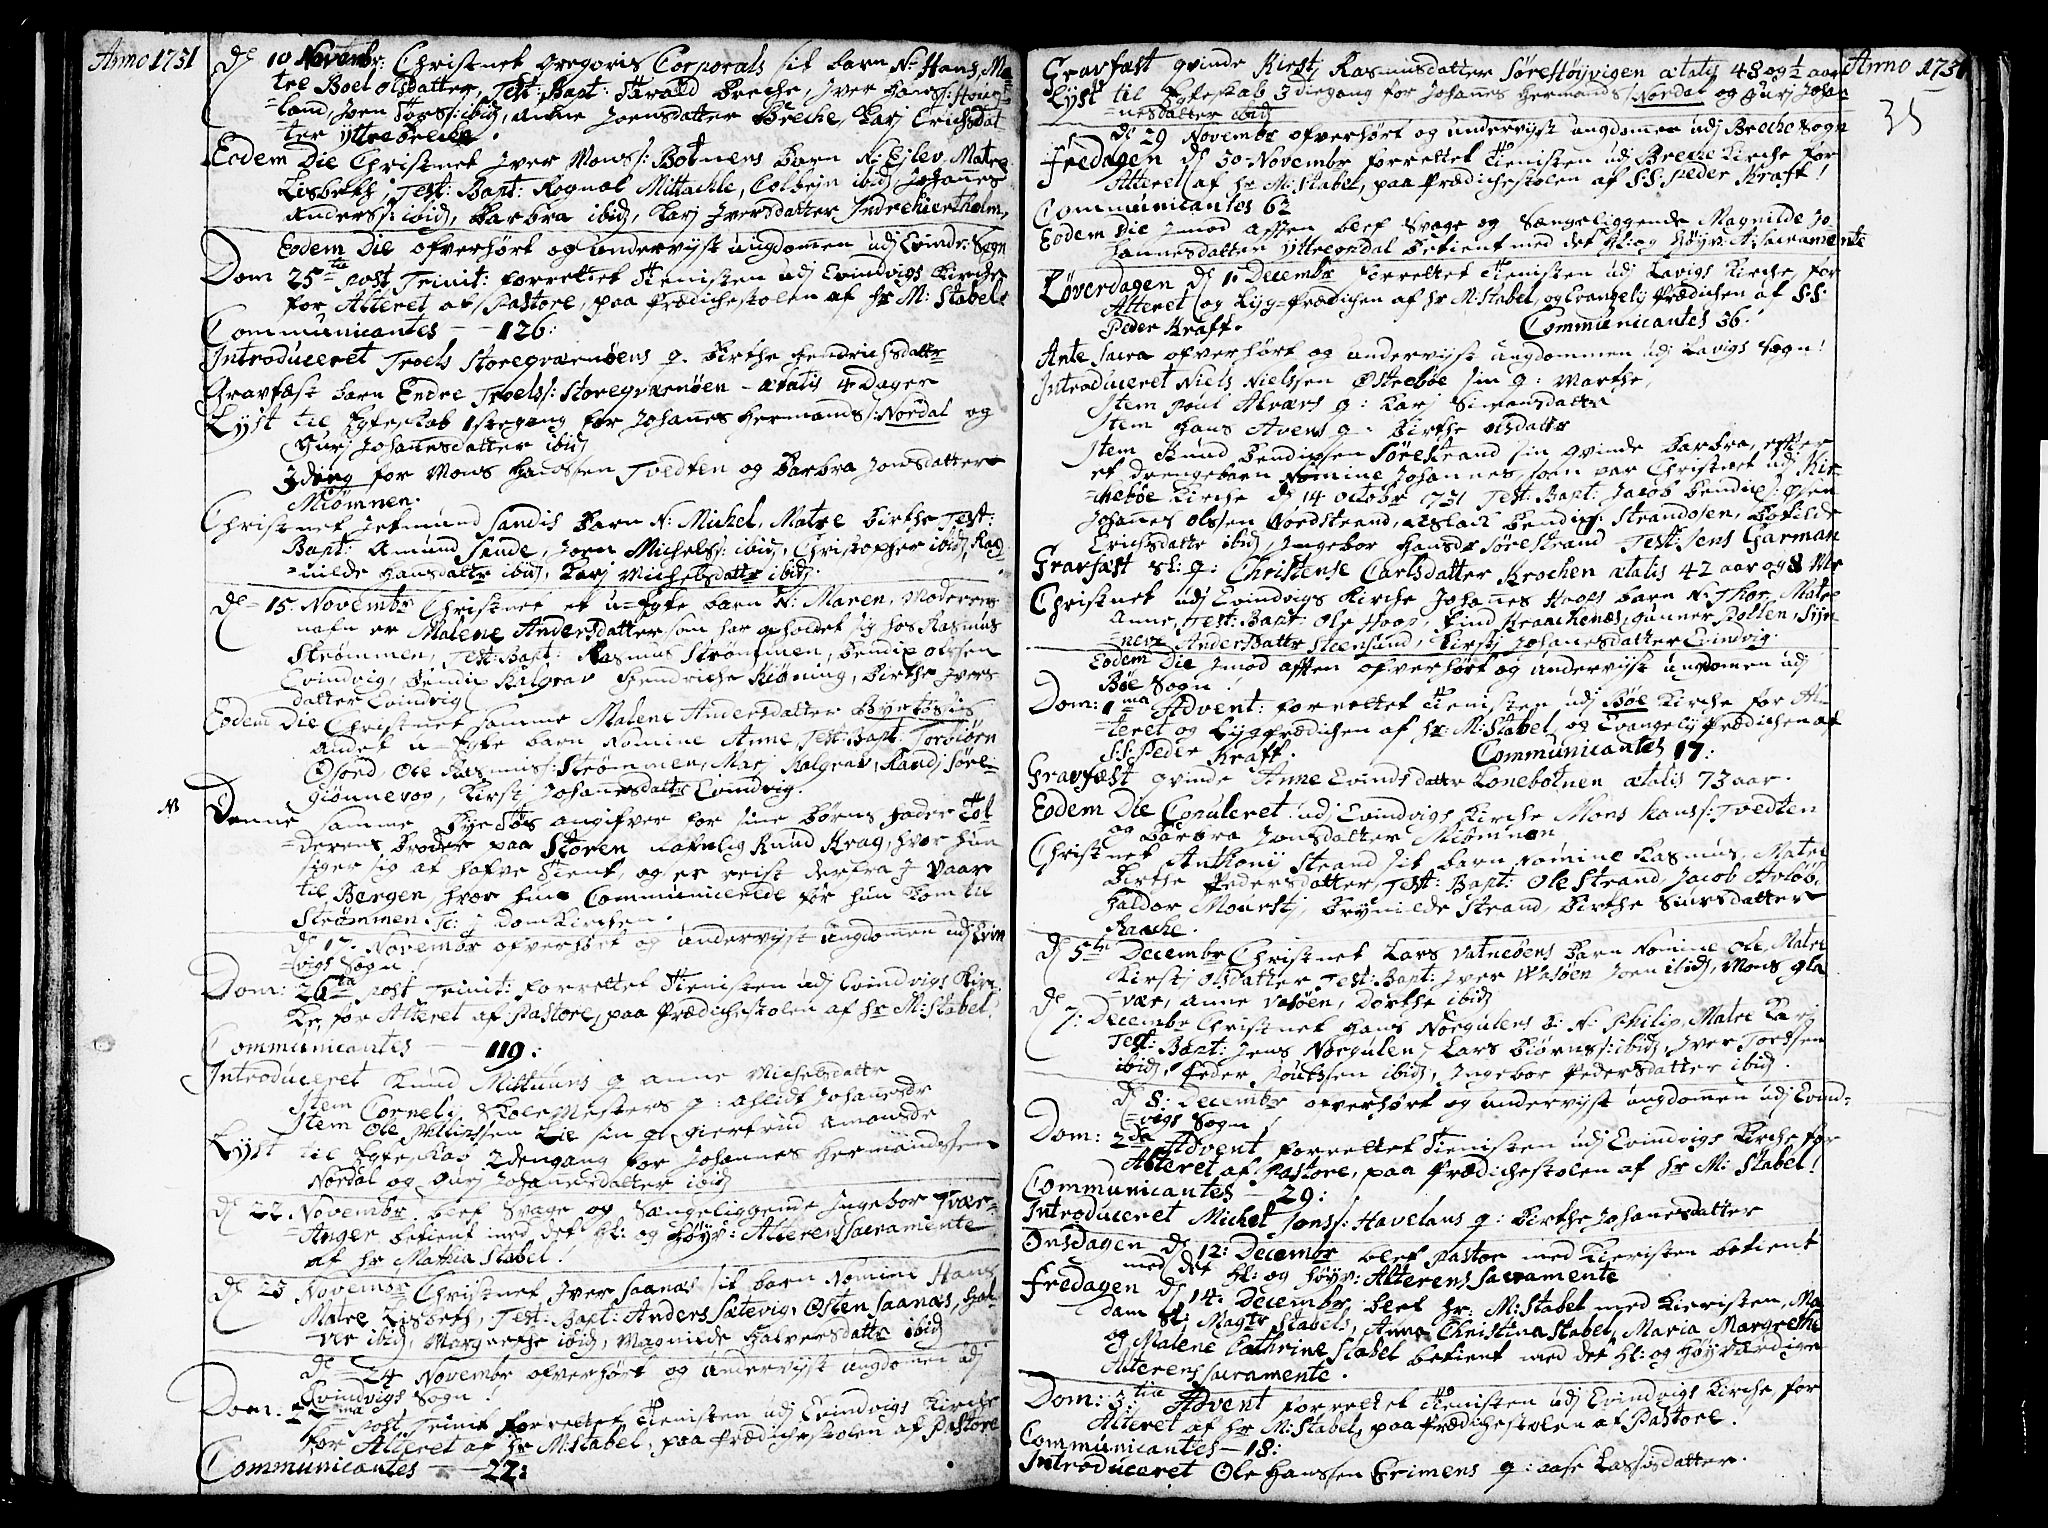 Anno 1731
d 10 Novembr: Christnet Gregoris Corporals sit barn N: Hans, Ma-
tre Boel olsdatter, Test: Bapt: Harald Breche, Iver Hans
land, Joen Tørs: ibid, Anne Joensdatter Breche, Karj Erichsdat
ter Yttrebreche.
Eodem Die Christnet Iver Mons: Botnens barn N: Ejlev, Matre
Lisbeth, Test: Bapt: Rognal Mittachle, Colbejn ibid, Johannes
Anders: ibid, Barbra ibid, Karj Iversdatter Indrehiertholm,
Eodem Die ofverhørt og undervijst ungdomen udj Evindv: Sogn
Dom 25te post Trinit: forrettet Tienisten udj Evindvigs Kirche
for Alteret af Pastore, paa Prædichestolen af hr M: Stabel
Communicantes — 126:
Introduceret Troels Storeqværnøens q. Birthe Hendrichsdattr
Gravfæst barn Endre Troels: Storeqværnøen - ætatis 4 Dager
Lyst til Egteskab 1stegang for Johannes Hermands: Nordal og
Gurj Johannesdatter ibid
3 dieng for Mons Hanssen Tvedten og Barbra Jonsdatter
Miømnen.
Christnet Jetmund Sandis Barn N: Michel, Matre Birthe Test:
Bapt: Amund Sande, Joen Michels: ibid, Christopher ibid, Rag
nilde Hansdattr ibid, Karj Michelsdattr ibid.
d 15 Novembr Christnet et u-Egte barn N: Maren, Moderens
nafn er Malene Andersdatter som har opholdet sig hos Rasmus
Strømmen, Test: Bapt: Rasmus Strømmen, Bendix olssen
Evindvig, Bendix Kalgrav Hendriche Kiøning, Birthe Ivers
datter Evindvig
Eodem Die Christnet samme Malene Andersdatter Byetøsis
andet u-Egte barn Nomine Anne, Test: Bapt: Torbiørn
Ole Rasmus: Strømmen, Marj Kalgrav, Randj Søre-
giønnevog, Kirstj Johannesdattr Evindvig.
NB Denne samme Bye Tøs angifver for sine Børns fader Tol-
derens Broder paa Støren nafnlig Knud Krag, hvor hun
siger sig at hafve Tient, og er reist derfra J Vaar
til Bergen, hvor hun Communicerede før hun kom til
Strømmen. Sc: j DomKirchen.
d 17. Novembr ofverhørt og undervijst ungdomen udj Evin
vigs Sogn
Dom: 26ta post Trinit: forrettet Tienisten udj Evindvigs Kir-
ke, for Alteret af Pastore, paa Prædichestolen af hr M: Stabel.
Communicantes — 119:
Introduceret Knud Mittuuns q Anne Michelsdattr
Item Cornely SkoleMesters q: Ahlidt Johannesdr
Item Ole Philipssen Lie sin q Giertrud Amonsdr
Lyst til Egteskab 2dengang for Johannes Hermandssen
Nordal og Gurj Johannesdatter ibid
d 22 Novembr blef Svage og Sængeliggende Ingebor Tvær-
Anger betient med det Hl: og Høyv: Alterens Sacramente
af hr Mathia Stabel!
d 23 Novembr Christnet Iver Saanæs sit barn Nomine Hans
Matre Lisbeth, Test: Bapt: Anders Sætevig, Østen Saanæs, Hal-
vor ibid, Margrethe ibid, Magnilde Halversdattr ibid
d 24 Novembr ofverhørt og undervijst ungdomen udj
Evindvigs Sogn!
Dom. 27ma post Trinit forrettet Tienisten udj Evindvigs Kirche
for Alteret af hr M: Stabel, paa Prædichestolen af Pastore
Communicantes — 22:
Anno 1731
35
Gravfæst qvinde Kirstj Rasmusdatter Sørestøyvigen ætatis 48 og ½ aar
Lyst til Egteskab 3diegang for Johannes Hermands: Nordal og Gurj Johan
nesdatter ibid
d 29 Novembr ofverhørt og undervijst ungdomen udj Breche Sogn
Fredagen d 30 Novembr forrettet Tienisten udj Breche Kirche for
Alteret af hr M: Stabel, paa Prædichestolen af S.S. Peder Kraft!
Communicantes 62
Eodem Die Imod afften blef Svage og Sængeliggende Magnilde Jo-
hannesdatter Yttreopdal betient med det Hl: og Høyv: A: Sacramente
Løverdagen d 1. Decembr forrettet Tienisten udj Lavigs Kirche, for
Alteret og Lijg-Prædichen af hr M: Stabel, og Evangelij Prædichen af S:S:
Peder Kraft. Communicantes 56.
Ante Sacra ofverhørt og undervijst ungdommen udj Lavigs Sogn!
Introduceret Niels Nielssen Østrebøe sin q: Marthe,
Item Poul Alværs q: Karj Simensdattr
Item Hans Avens q. Birthe olsdattr
Item Knud Bendixsen Sørestrand sin qvinde Barbra, efter
et drengebarn Nomine Johannes, som var Christnet udj Kir-
chebøe Kirche d 14 octobr 731 Test: Bapt: Jacob Bendix: Øsen
Johannes Olssen Nordstrand, Aslach Bendix: Strandosen, Botilde
Erichsdattr ibid, Ingebor Hansdr Sørestrand Test: Jens Garman
Gravfæst Sl: q: Christense Carlsdatter Krochen ætatis 42 aar og 8 Mr
Christnet udj Evindvigs Kirche Johannes Hoops barn N: Thor, Matre
Anne, Test: Bapt: Ole Hoop, Find Kraachenæs, Gunner Polten, Syn-
neve Andersdattr Steensund, Kirstj Johannesdatter Evindvig.
Eodem Die Jmod afften ofverhørt og undervijst ungdomen udj
Bøe Sogn!
Dom: 1ma Advent: forrettet Tienisten udj Bøe Kirche for Al-
teret og Lijgprædichen af hr M: Stabel, og Evangelij Prædichen af
S:S: Peder Kraft. Communicantes 17:
Gravfæst qvinde Anne Evindsdatter Lonebotnen ætatis 73 aar.
Eodem Die Copuleret udj Evindvigs Kirche Mons Hans: Tvedten
og Barbra Jonsdatter Miømnen
Christnet Anthonij Strand sit barn nomine Rasmus, Matre
Birthe Pedersdatter, Test: Bapt: Ole Strand, Jacob Avløb,
Haldor Mourstj, Brynilde Strand, Birthe Siursdatter
Raache.
d 5te Decembr Christnet Lars Vatneøens barn Nomine Ole, Matre
Kirstj Olsdatter, Test: Bapt: Iver Waløen Joen ibid, Mons gla-
vær, Anne Valøen, Dorthe ibid
d 7: Decembr Christnet Hans Nørgulens B: N: Philip, Matre Karj
Test: Bapt: Jens Nørgulen, Lars Biørns: ibid, Iver Tordsen
ibid, Peder Poulssen ibid, Ingebor Pedersdatter ibid.
d 8: Decembr ofverhørt og undervijst ungdomen udj Evind-
vigs Sogn!
Dom: 2da Advent forrettet Tienisten udj Evindvigs Kirche for
Alteret af Pastore, paa Prædichestolen af hr M: Stabel!
Communicantes — 29:
Introduceret Michel Jons: Havelans q: Birthe Johannesdatter
Onsdagen d 12: Decembr blef Pastor med Kieristen betient
med det Hl: og Høyv: Alterens Sacramente
Fredagen d 14. Decembr blef hr: M: Stabel med Kieristen, Ma-
dam Sl: Magtr Stabels, Anna Christina Stabel, Maria Margrethe
og Malene Cathrine Stabel betient med det Hl: og Høyværdige
Alterens Sacramente.
Dom: 3tia Advent forrettet Tienisten udj Evindvigs Kirche, for
Alteret af hr M: Stabel, paa Prædichestolen af Pastore.
Communicantes — 18:
Introduceret Ole Hanssen Erimens q: Aase Lassesdatter.